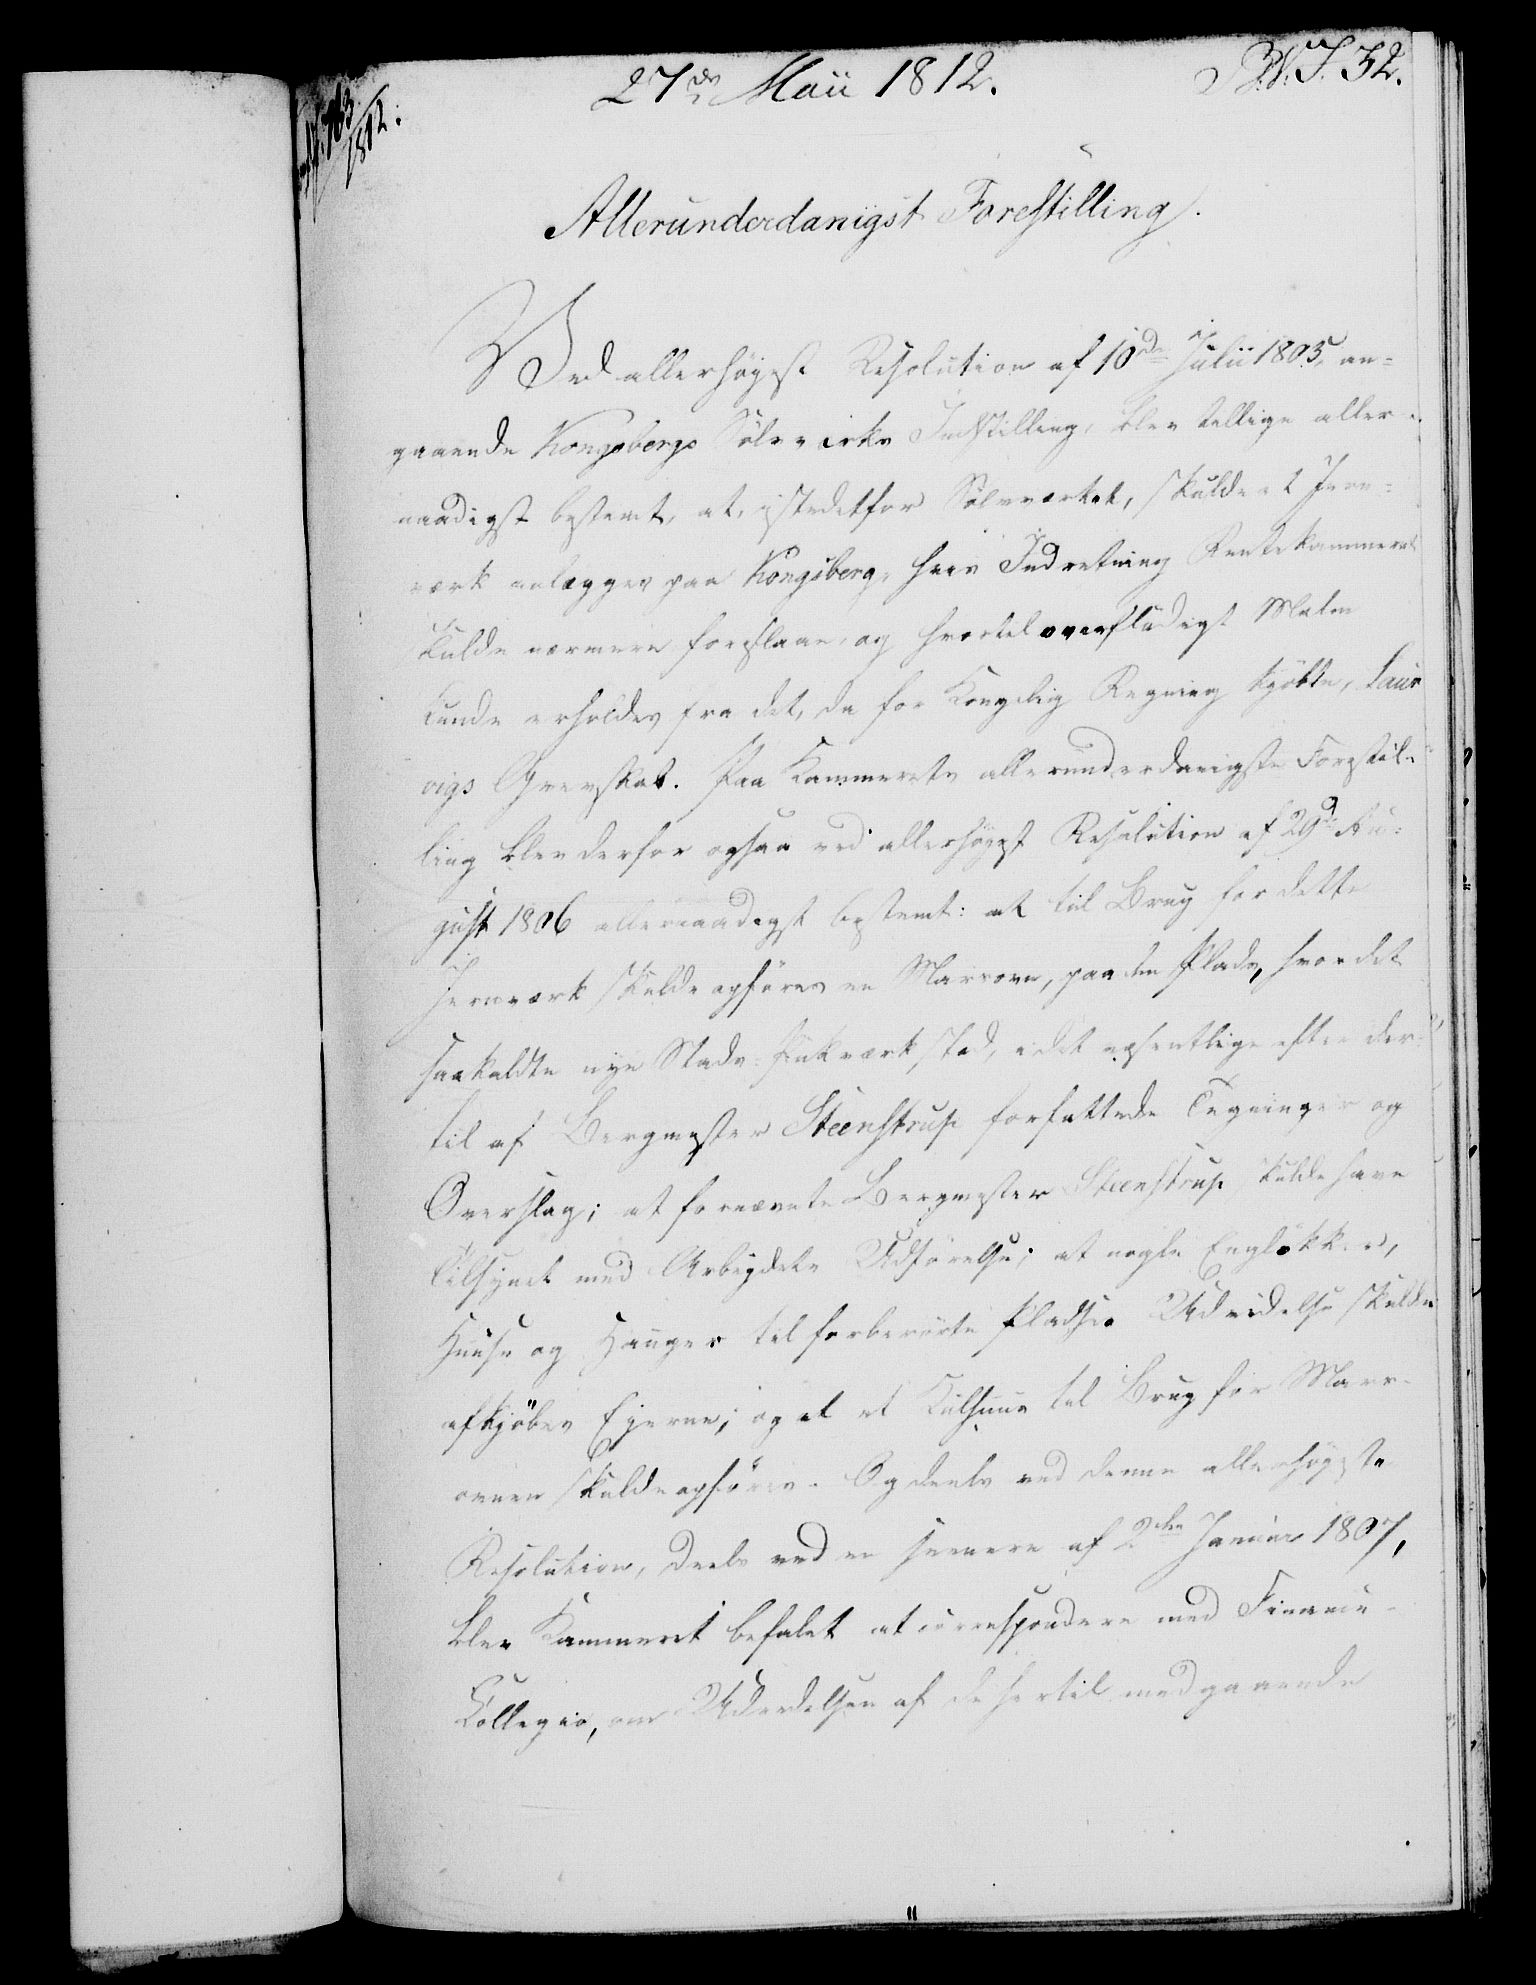 27de Maii 1812.
N. 32.
163
1812.
Allerunderdanigst Forestilling.
Ved allerhøyest Resolution af 10de Julii 1805, an-
gaaende Kongsbergs Sølvværks Indstilling, blev tillige aller-
naadigst bestemt, at, istedetfor Sølvværket, skulde et Jern-
værk anlægges paa Kongsberg, hvis Indretning Rentekammeret
skulde nærmere foreslaae, og hvortil overflødigt Malm
kunde erholdes fra det, da for Kongelig Regning kjøbte, Laur
vigs Grevskab. Paa Kammerets allerunderdanigste Forestil-
ling blev derfor ogsaa ved allerhøyest Resolution af 29de Au-
gust 1806 allernaadigst bestemt: at til Brug for dette
Jernværk skulde opføres en Masovn, paa den Plads, hvor det
saakaldte nye Stads-Pukværk stod, i det væsentlige efter der-
til af Bergmester Steenstrup forfattede Tegninger og
Overslag; at fornævnte Bergmester Steenstrup skulde have
Tilsynet med Arbeydets Udførelse; at nogle Engløkker,
Huuse og Hauger til forberørte Pladses Udvidelse skulde
afkjøbes Eyerne; og at et Kulhuus til Brug for Mas-
ovnen skulde opføres. Og deels ved denne allerhøyeste
Resolution, deels ved en senere af 2den Januar 1807,
blev Kammeret befalet at correspondere med Finants-
Collegio, om Udredelsen af de hertil medgaaende